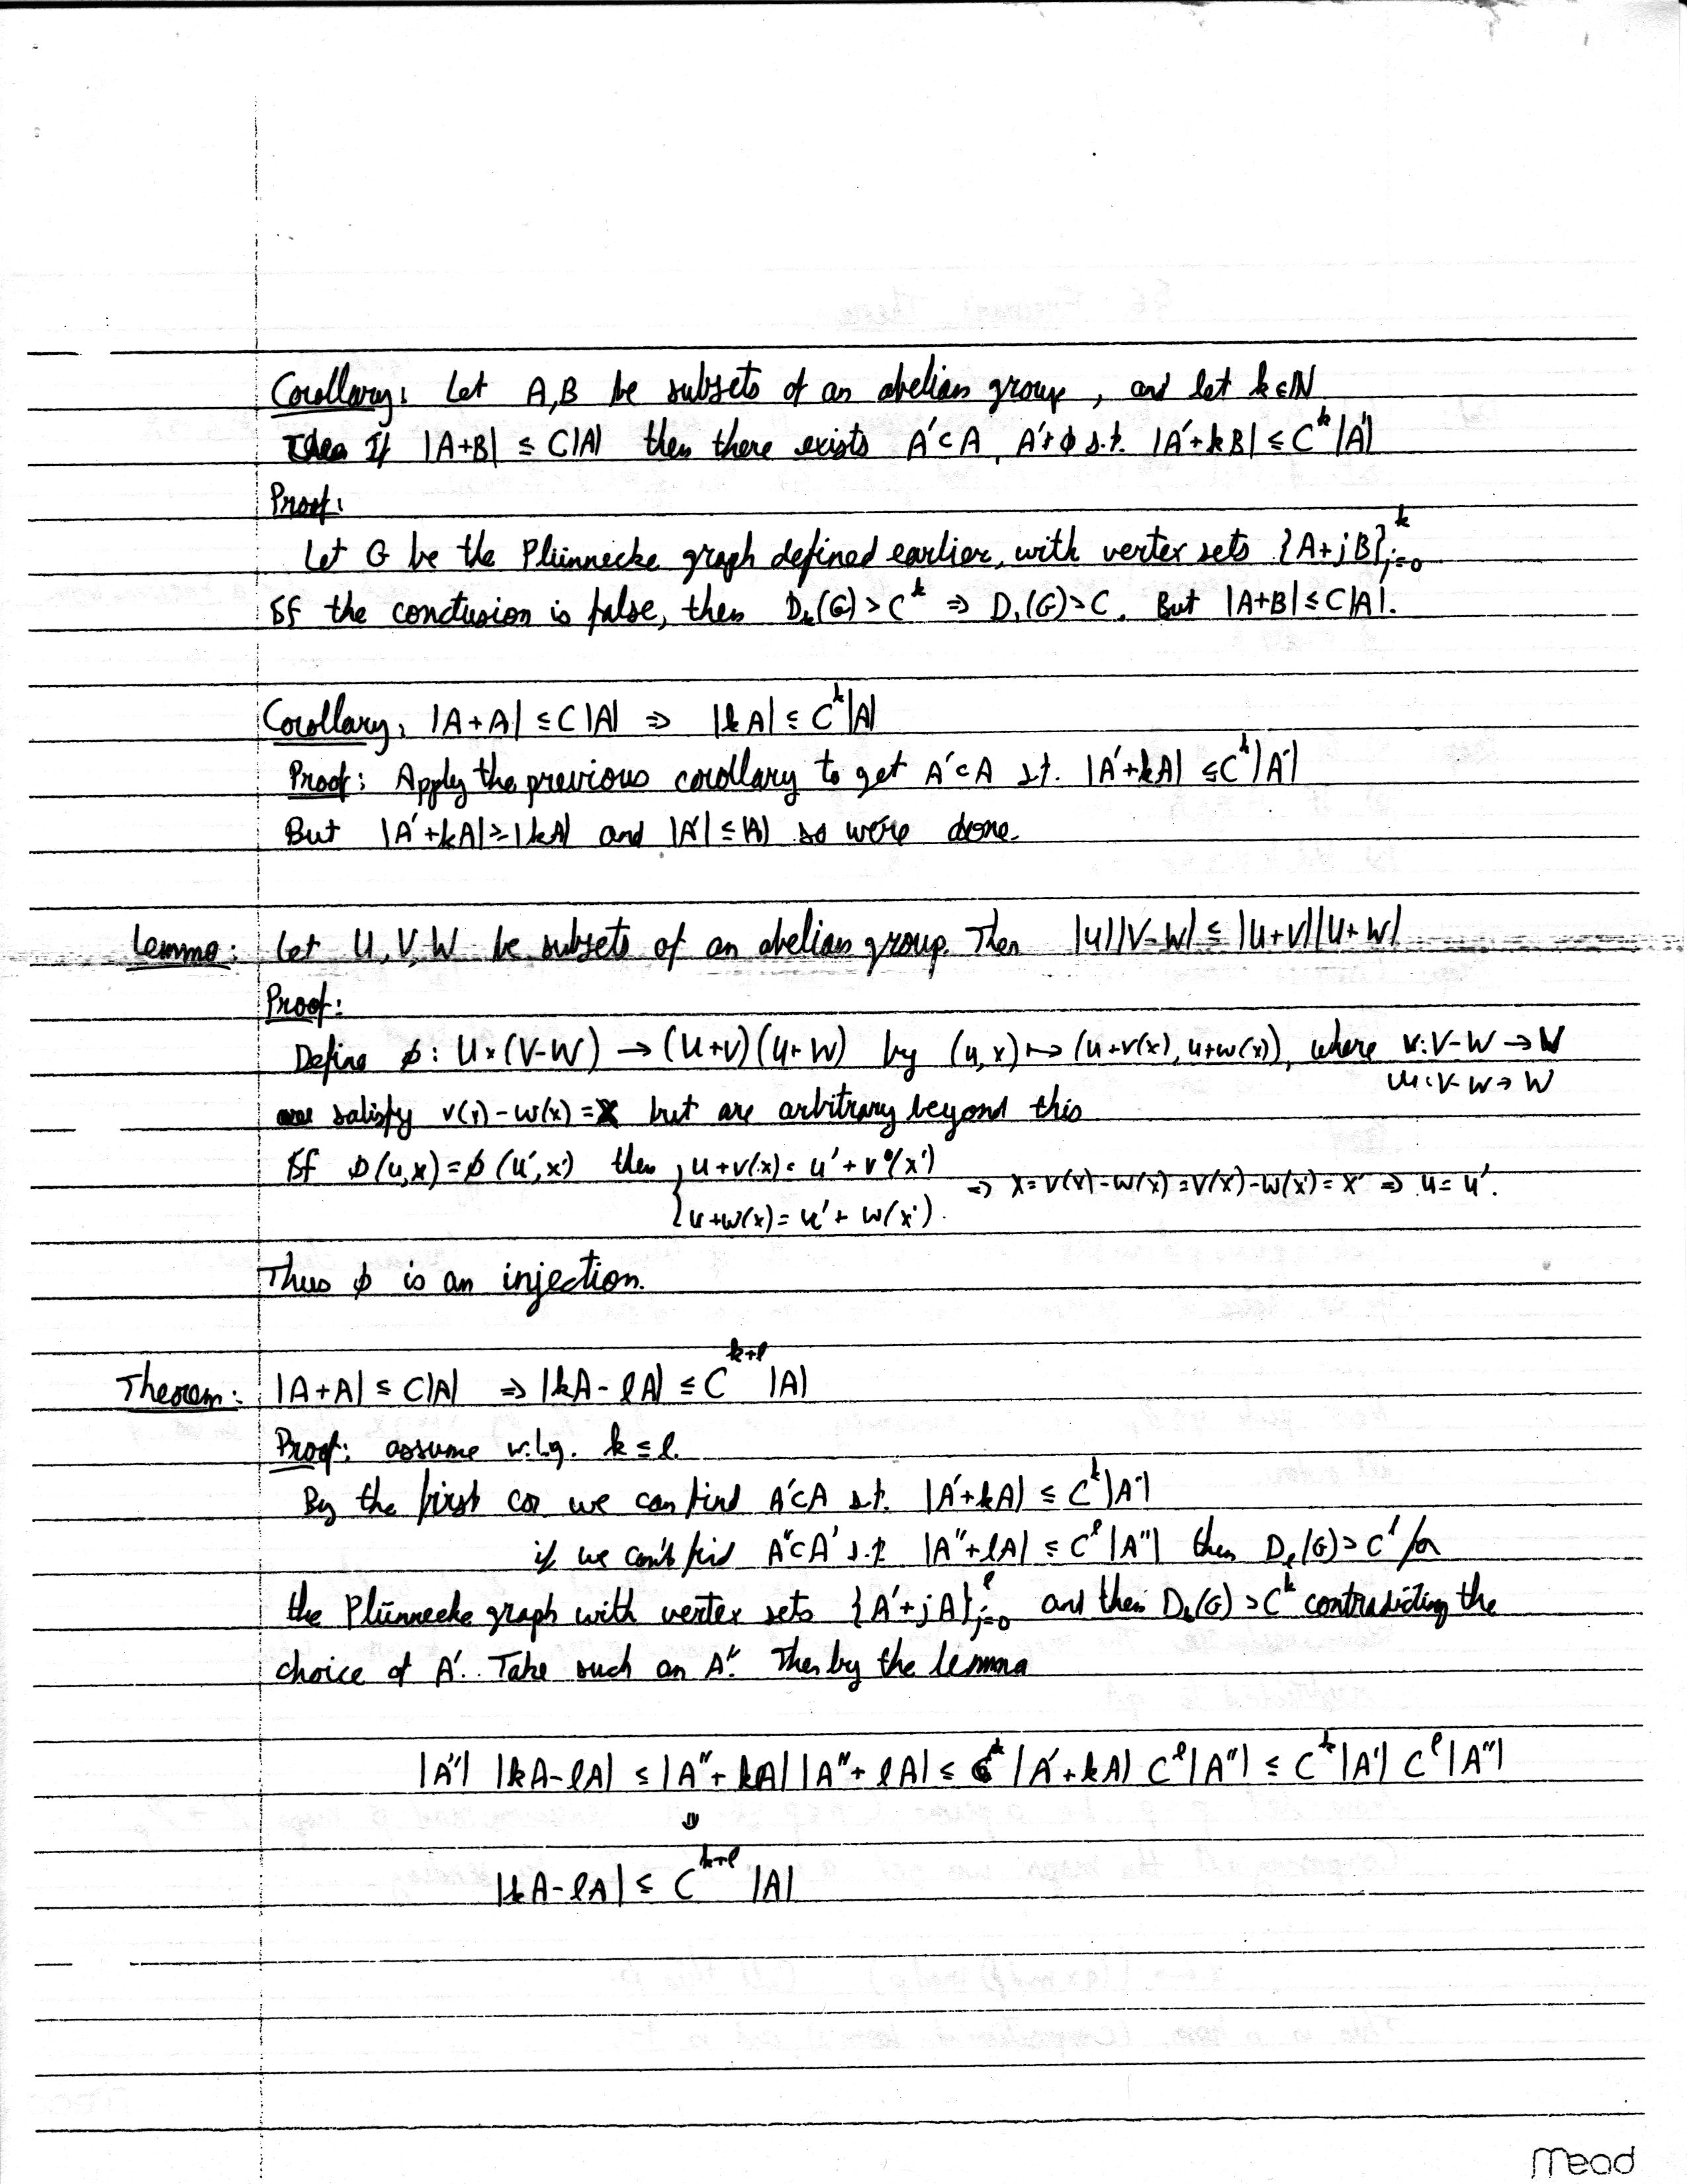 Corollary: Let A,B be subsets of an abelian group, and let k∈ℕ.
If |A+B| ≤ C|A| then there exists A'⊂A, A'≠φ s.t. |A'+kB| ≤ C^k |A'|
Proof:
Let G be the Plünnecke graph defined earlier, with vertex sets {A+jB}_{j=0}^k
If the conclusion is false, then D_k(G) > C^k ⇒ D_1(G) > C. But |A+B| ≤ C|A|.
Corollary: |A+A| ≤ C|A| ⇒ |kA| ≤ C^k|A|
Proof: Apply the previous corollary to get A'⊂A s.t. |A'+kA| ≤ C^k|A'|
But |A'+kA| ≥ |kA| and |A'| ≤ |A| so we're done.
Lemma: Let U,V,W be subsets of an abelian group. Then |U||V-W| ≤ |U+V||U+W|
Proof:
Define φ: U×(V-W) → (U+V)(U+W) by (u,x) ↦ (u+v(x), u+w(x)), where v: V-W → V
w: V-W → W
satisfy v(x) - w(x) = x but are arbitrary beyond this
If φ(u,x) = φ(u',x') then { u+v(x) = u'+v(x') ⇒ x = v(x)-w(x) = v(x')-w(x') = x' ⇒ u = u'.
u+w(x) = u'+w(x').
Thus φ is an injection.
Theorem: |A+A| ≤ C|A| ⇒ |kA-ℓA| ≤ C^{k+ℓ} |A|
Proof: assume w.l.g. k ≤ ℓ.
By the first cor we can find A'⊂A s.t. |A'+kA| ≤ C^k|A'|
if we can't find A''⊂A' s.t. |A''+ℓA| ≤ C^ℓ |A''| then D_ℓ(G) > C^ℓ for
the Plünnecke graph with vertex sets {A'+jA}_{j=0}^ℓ and then D_k(G) > C^k contradicting the
choice of A'. Take such an A''. Then by the lemma
|A''| |kA-ℓA| ≤ |A''+kA| |A''+ℓA| ≤ |A'+kA| C^ℓ|A''| ≤ C^k|A'| C^ℓ|A''|
⇓
|kA-ℓA| ≤ C^{k+ℓ} |A|
mead